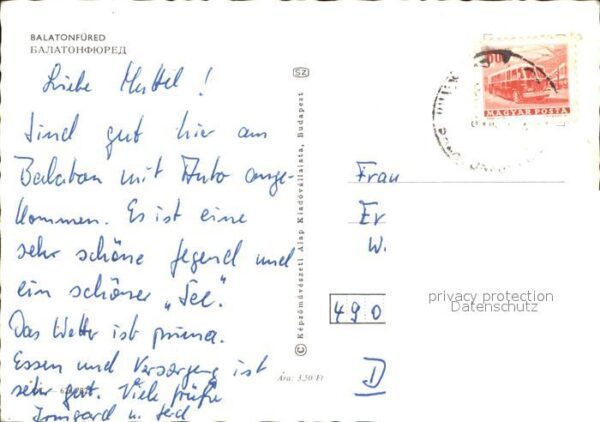 BALATONFÜRED
БАЛАТОНФЮРЕД
Liebe Muttel!
Sind gut hier am
Balaton mit Auto ange-
kommen. Es ist eine
sehr schöne Gegend und
ein schöner „See".
Das Wetter ist prima.
Essen und Versorgung ist
sehr gut. Viele Grüße
Irmgard u.
SZ
© Képzőművészeti Alap Kiadóvállalata, Budapest
Ára: 3,50 Ft
MAGYAR POSTA
Frau
Er
W.
490
D
privacy protection
Datenschutz